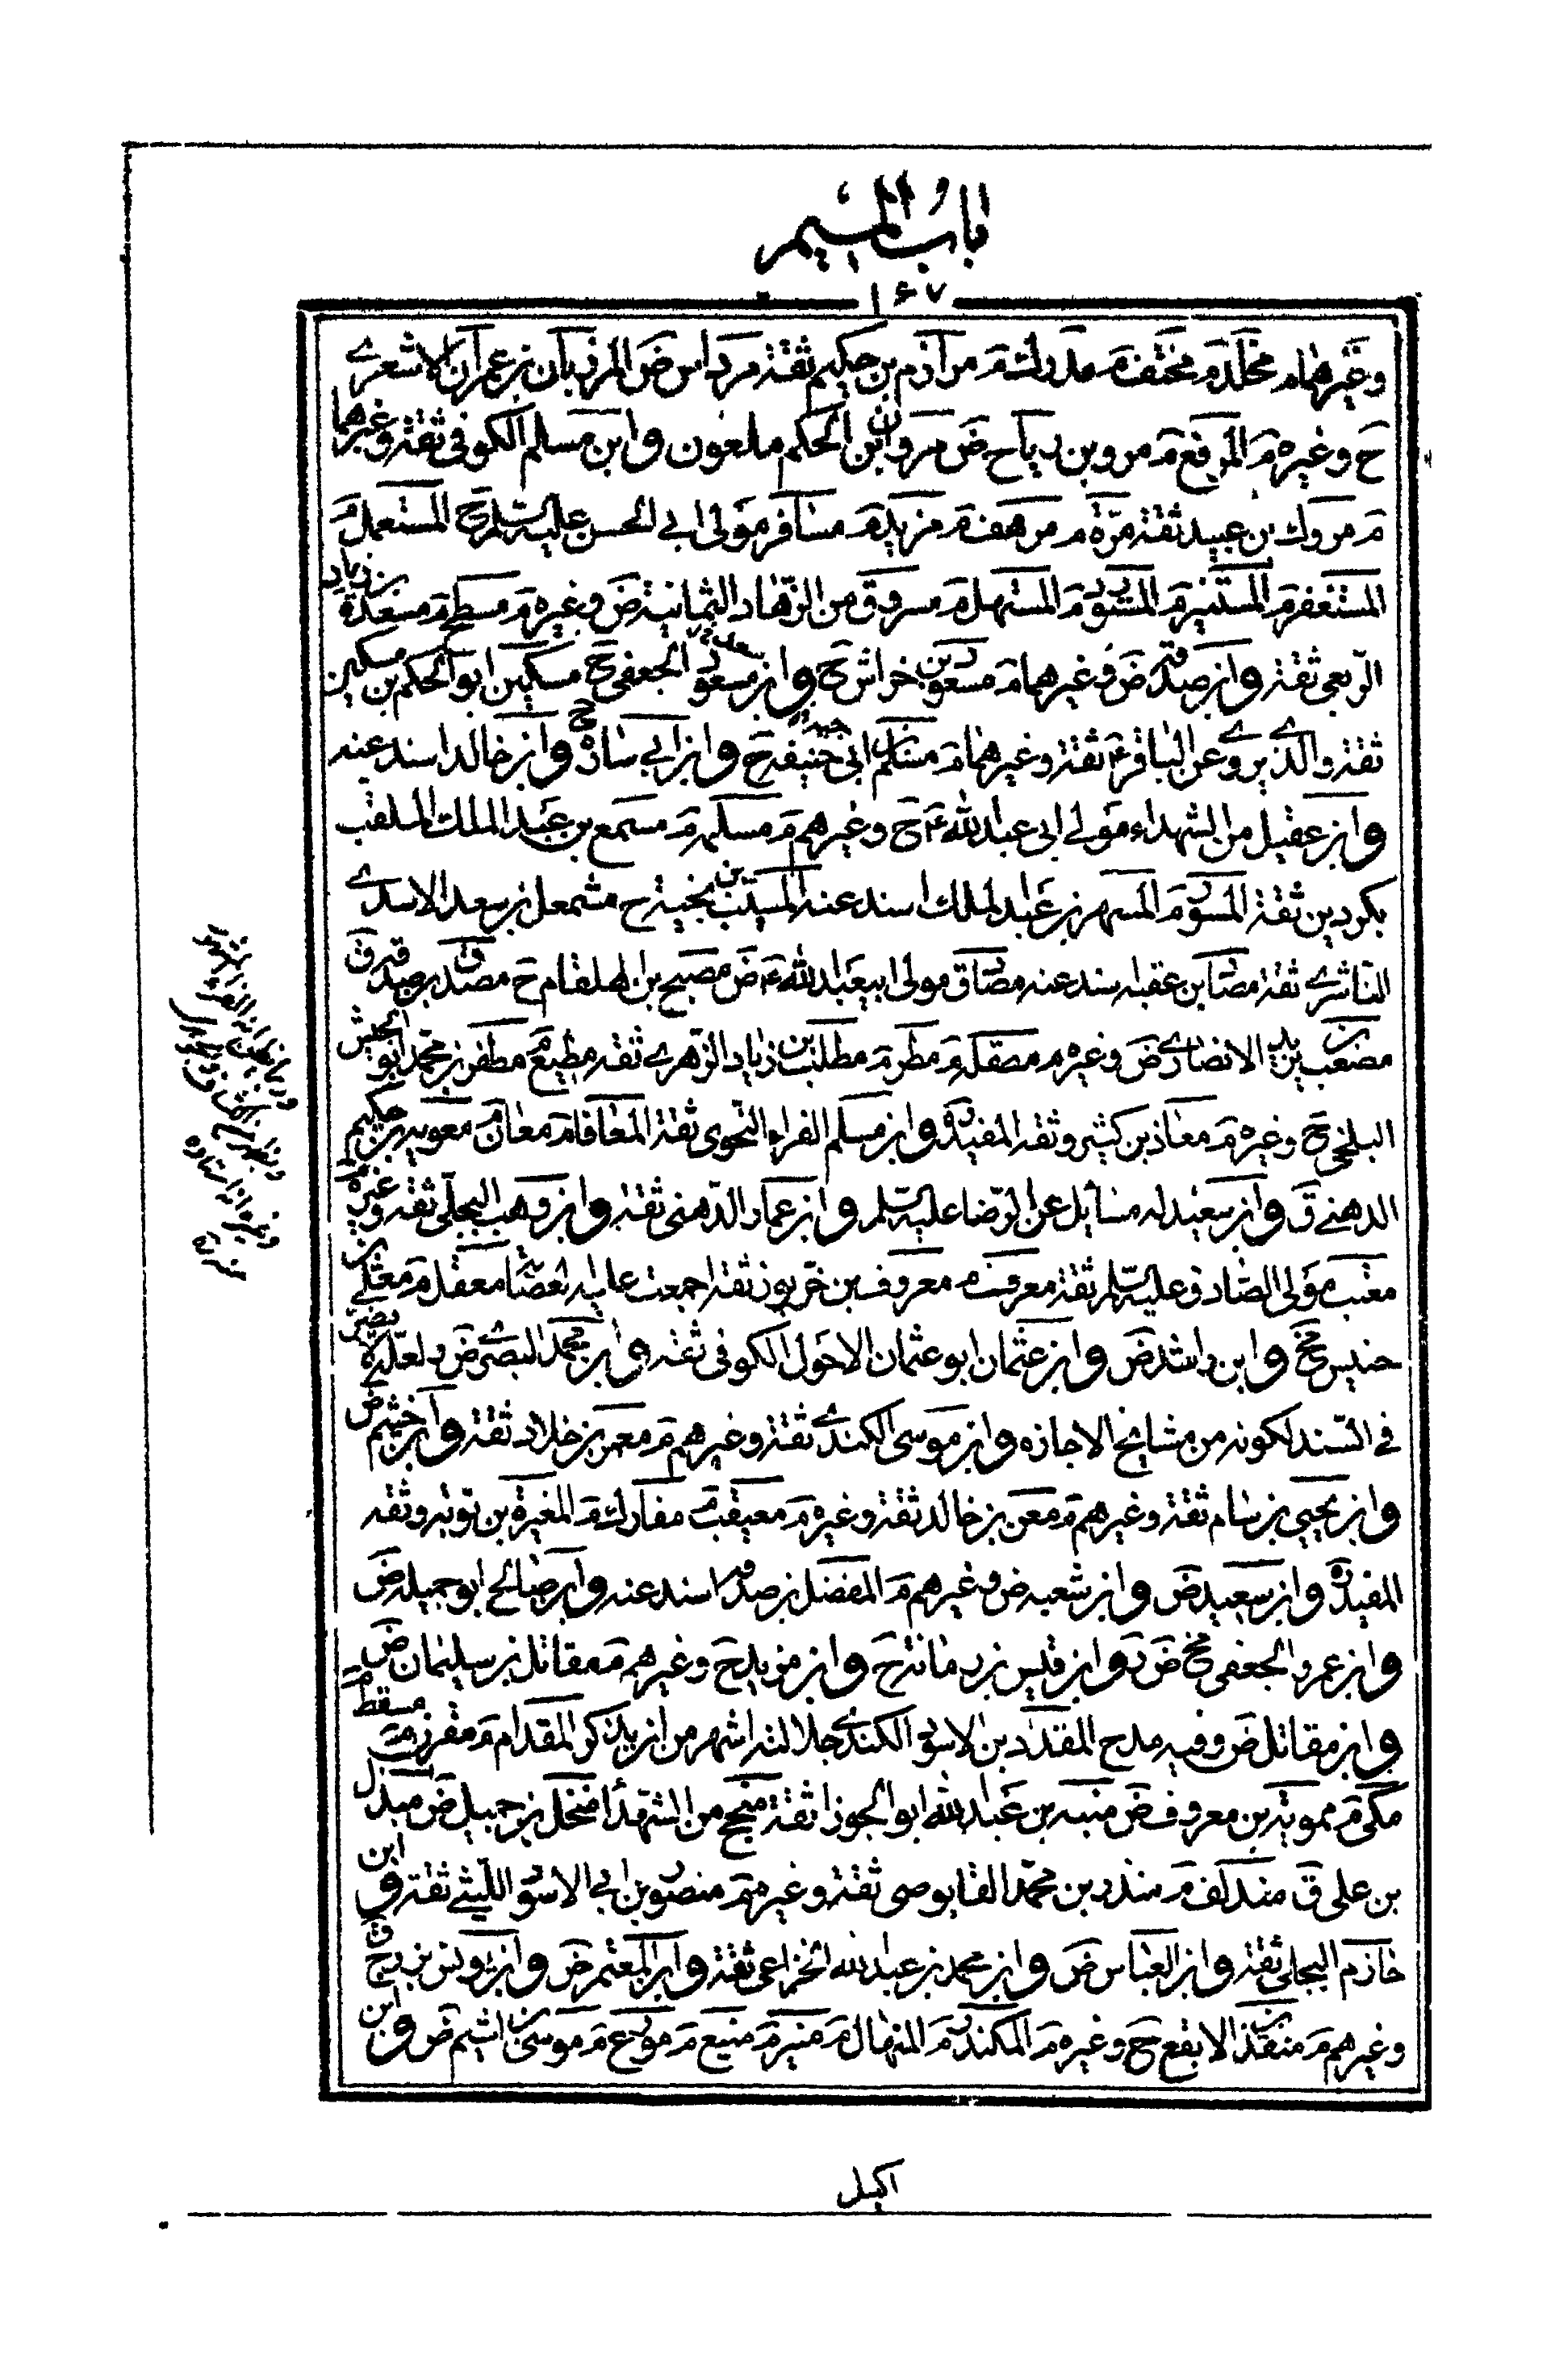 باب الميم
۱۶۷
وغيرهما م مخلد م مخنف م مدرك م مرازم بن حكيم ثقة مرداس ض المرزبان بن عمران الاشعري
ح وغيره م المرقع م مرو بن رياح ض مروان ابن الحكم ملعون وابن مسلم الكوفي ثقة وغيرهما
م مروك بن عبيد ثقة مرة م مرهف م مزيد م مسافر مولى ابي الحسن عليه السلم ح المستعمل م
المستغفر م المستنير م المستورد م المستهل م مسروق من الزهاد الثمانية ض وغيره م مسطح م مسعدة بن زياد
الربعي ثقة وابن صدقة ض وغيرهما م مسعود بن خراش ح وابن مسعود الجعفي ح مسكين ابو الحكم بن مسكين
ثقة والذي يروي عن الباقر ع ثقة وغيرهما م مسلم بن ابي حنيفة ح وابن ابي سارة ح وابن خالد اسند عنه
وابن عقيل من الشهداء مولى ابي عبد الله ع ح وغيرهم م مسلمة م مسمع بن عبد الملك الملقب
بكردين ثقة المسور م المسهر بن عبد الملك اسند عنه المسيب بن نجية ح مشمعل بن سعد الاسدي
الناشري ثقة مصاد بن عقبة اسند عنه مصادق مولى ابي عبد الله ع ض مصبح بن الهلقام ح مصدق بن صدقة ق
مصعب بن يزيد الانصاري ض وغيره م مصقلة م مطر م مطلب بن زياد الزهري ثقة مطيع م مظفر بن محمد ابو الجيش
البلخي ح وغيره م معاذ بن كثير وثقه المفيد ره وابن مسلم الفراء النحوي ثقة المعافا م معان م معوية بن حكيم
الدهني ق وابن سعيد له مسائل عن الرضا عليه السلم وابن عمار الدهني ثقة وابن وهب البجلي ثقة وغيره م
معتب مولى الصادق عليه السلم ثقة معرف م معروف بن خربوذ ثقة اجمعت عليه العصابة معقل م معلى بن
خنيس مخ وابن راشد ض وابن عثمان ابو عثمان الاحول الكوفي ثقة وابن محمد البصري ض ولعله لا يضر
في السند لكونه من مشايخ الاجازه وابن موسى الكندي ثقة وغيرهم م معمر بن خلاد ثقة وابن خثيم ض
وابن يحيى بن سام ثقة وغيرهم م معن بن خالد ثقة وغيره م معيقب م مفارك م المغيرة بن توبة وثقه
المفيد ره وابن سعيد ض وابن شعبه ض وغيرهم م المفضل بن صدقة اسند عنه وابن صالح ابو جميلة ض
وابن عمرو الجعفي مخ ض ر وابن قيس بن رمانة ح وابن مزيد ح وغيرهم م مقاتل بن سليمان ض
وابن مقاتل ض وفيه مدح المقداد بن الاسود الكندي جلالته اشهر من ان يذكر المقدام م مقرن م مسقط م
مكي م ممويه بن معروف ض منبه بن عبد الله ابو الجوزا ثقة منجح من الشهدا منخل بن جميل ض مندل
بن علي ق مندلف م منذر بن محمد القابوصي ثقة وغيره م منصور بن ابي الاسود الليثي ثقة وابن
حازم البجلي ثقة وابن العباس ض وابن محمد بن عبد الله الخزاعي ثقة وابن المعتمر ض وابن يونس بزرج ق
وغيرهم م منقذ بن الابقع ح وغيره م المكندر م المنهال م منير م منيع م مودع م موسى بن اشيم ض وابن
اكيل